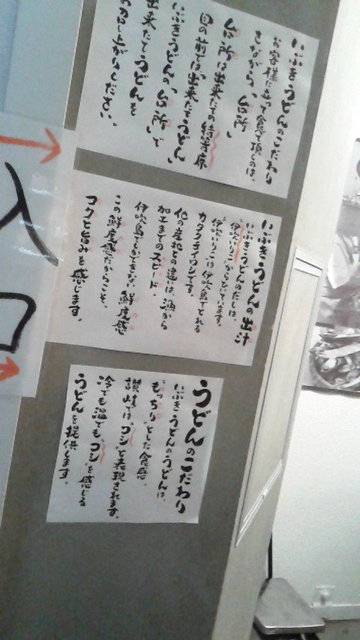 いぶきうどんのこだわり
お客様に立って食べて頂くのは、
さながら、「台所」
台所は出来たての特等席
目の前では出来たてうどん
いぶきうどんの「台所」で
出来たてうどんを
めし上がりください。
いぶきうどんの出汁
いぶきうどんのだしは、
伊吹いりこからひいています。
伊吹いりことは伊吹島でとれる
カタクチイワシです。
他の産地との違いは、漁から
加工までのスピード。
伊吹島でしかできない鮮度感
この鮮度感だからこそ、
コクと旨みを感じます。
うどんのこだわり
いぶきうどんのうどんは、
もっちりとした食感。
讃岐では、コシと表現されます。
冷でも温でも、コシを感じる
うどんを提供します。
入口